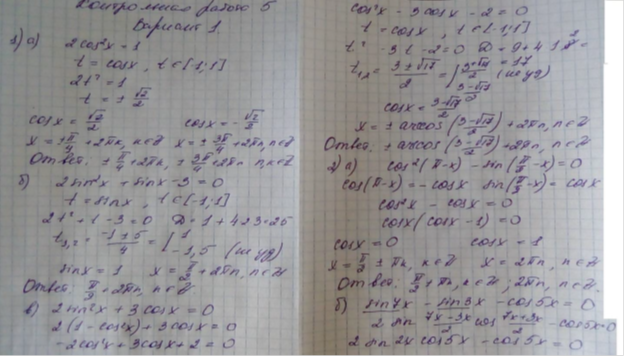 Контрольная работа 5
Вариант 1.
1) а) 2cos²x = 1
t = cosx, t ∈ [-1;1]
2t² = 1
t = ± √2/2
cosx = √2/2 cosx = -√2/2
x = ± π/4 + 2πk, k∈Z x = ± 3π/4 + 2πn, n∈Z
Ответ: ± π/4 + 2πk, ± 3π/4 + 2πn n,k∈Z
б) 2sin²x + sinx - 3 = 0
t = sinx, t ∈ [-1;1]
2t² + t - 3 = 0 D = 1 + 4·2·3 = 25
t₁,₂ = (-1 ± 5)/4 = [1
-1,5 (не уд)
sinx = 1 x = π/2 + 2πn, n∈Z
Ответ: π/2 + 2πn, n∈Z
в) 2sin²x + 3cosx = 0
2(1 - cos²x) + 3cosx = 0
-2cos²x + 3cosx + 2 = 0
cos²x - 3cosx - 2 = 0
t = cosx, t ∈ [-1;1]
t² - 3t - 2 = 0 D = 9 + 4·1·2 = 17
t₁,₂ = (3 ± √17)/2 = [(3+√17)/2 (не уд)
(3-√17)/2
cosx = (3-√17)/2
x = ± arccos((3-√17)/2) + 2πn, n∈Z
Ответ: ± arccos((3-√17)/2) + 2πn, n∈Z
2) а) cos²(π-x) - sin(π/2 - x) = 0
cos(π-x) = -cosx sin(π/2 - x) = cosx
cos²x - cosx = 0
cosx(cosx - 1) = 0
cosx = 0 cosx = 1
x = π/2 ± πk, k∈Z x = 2πn, n∈Z
Ответ: π/2 + πk, k∈Z; 2πn, n∈Z.
б) sin7x - sin3x - cos5x = 0
2 sin (7x-3x)/2 cos (7x+3x)/2 - cos5x = 0
2 sin2x cos5x - cos5x = 0